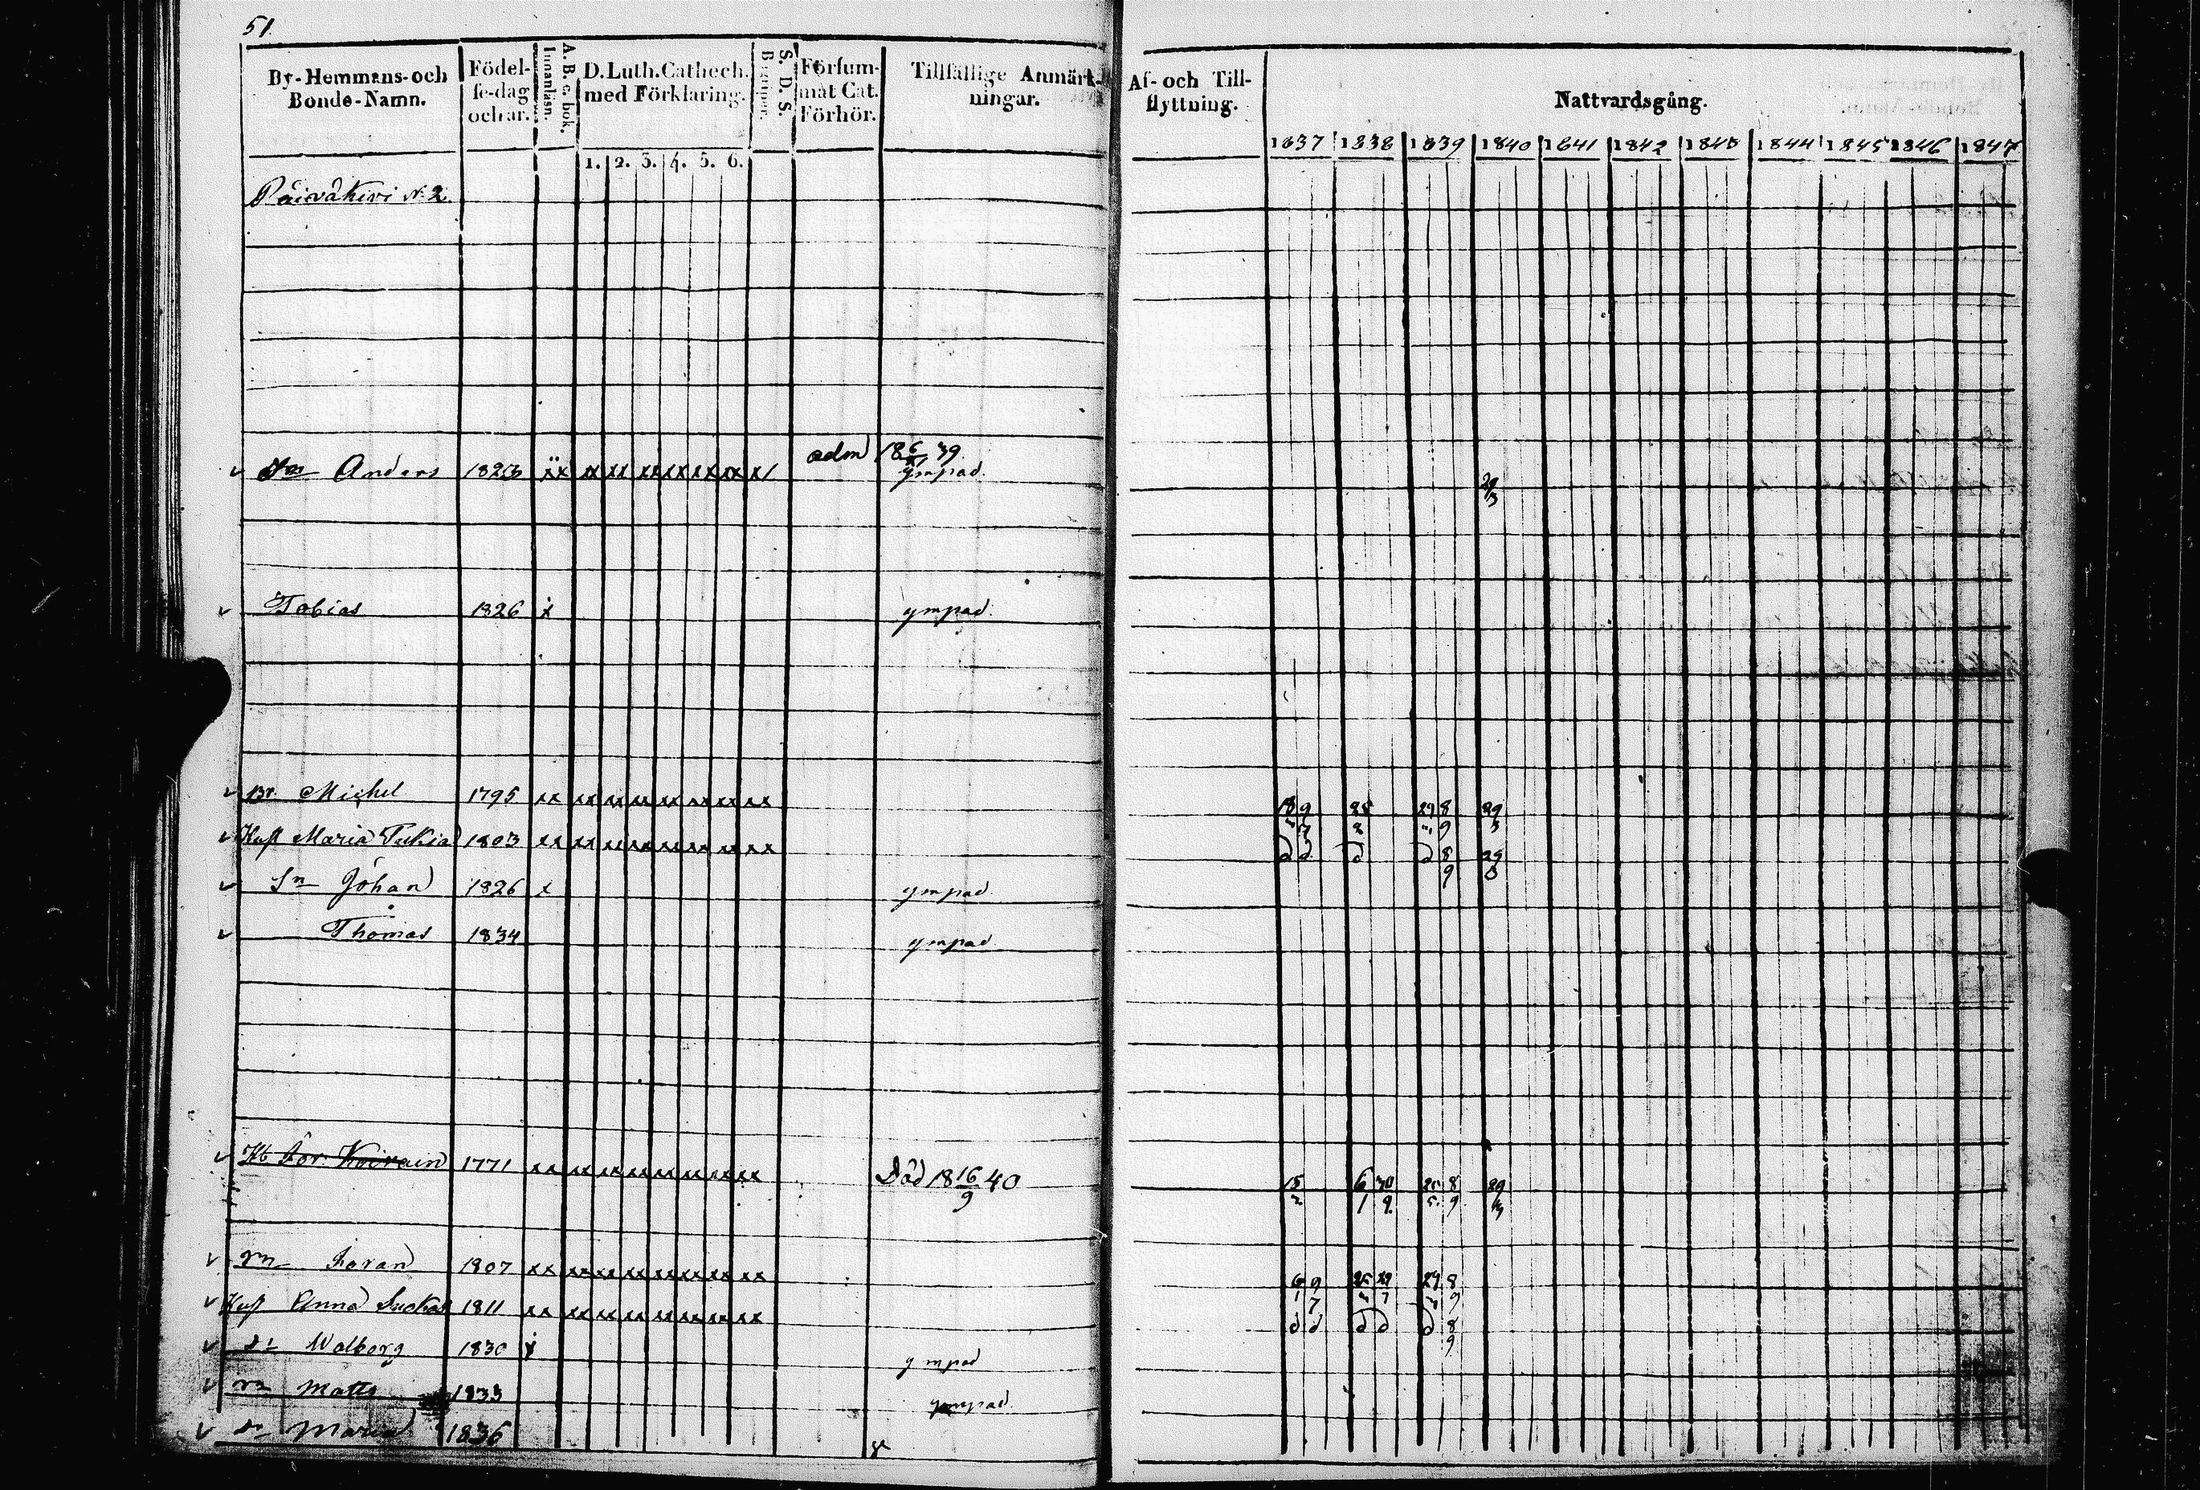 51.
By-Hemmans- och Bonde-Namn.
Födelse-dag och år.
A. B. c. bok. Innanläsn.
D. Luth. Cathech. med Förklaring.
1. 2. 3. 4. 5. 6.
S. D. S. Begripn.
Försummat Cat. Förhör.
Tillfällige Anmärkningar.
Af- och Tillflyttning.
Nattvardsgång.
1837 1838 1839 1840 1841 1842 1843 1844 1845 1846 1847
Päiväkivi N:2
adm 18 6/ 39
Sn Anders 1823 xx xx xx xx xx xx xx x/ ympad. 29/3
Tobias 1826 x ympad.
Br. Michel 1795 xx xx xx xx xx xx xx xx 18 9/7 25 29 8/9 29/3
Hust Maria Tukia 1803 xx xx xx xx xx xx xx xx d d d d 8/9 29
Sn Johan 1826 x ympad
Thomas 1834 ympad
1771 xx xx xx xx xx xx xx xx Död 18 16/9 40 15/2 6/1 30/9 25/5 8/9 29/3
1807 xx xx xx xx xx xx xx xx 6/1 9/7 25 29/7 29 8/9
Hust Anna 1811 xx xx xx xx xx xx xx xx d d d d d 8/9
Walborg 1830 x ympad
Matts 1833 ympad
Maria 1836